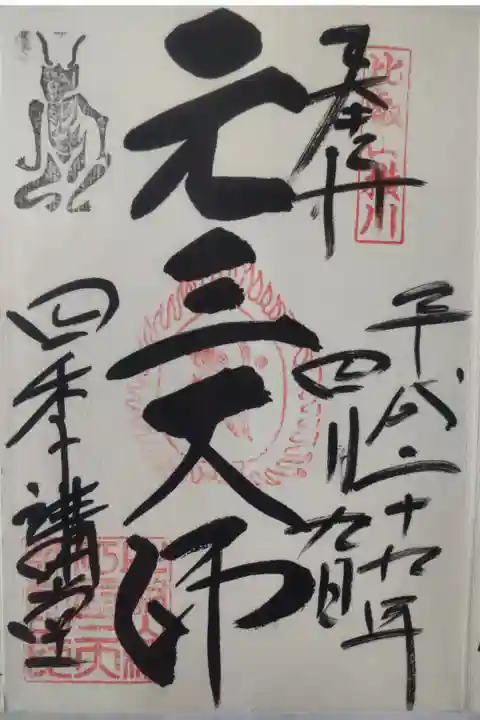 比叡山横川
奉拝
平成二十九年
四月九日
元三大師
四季講堂